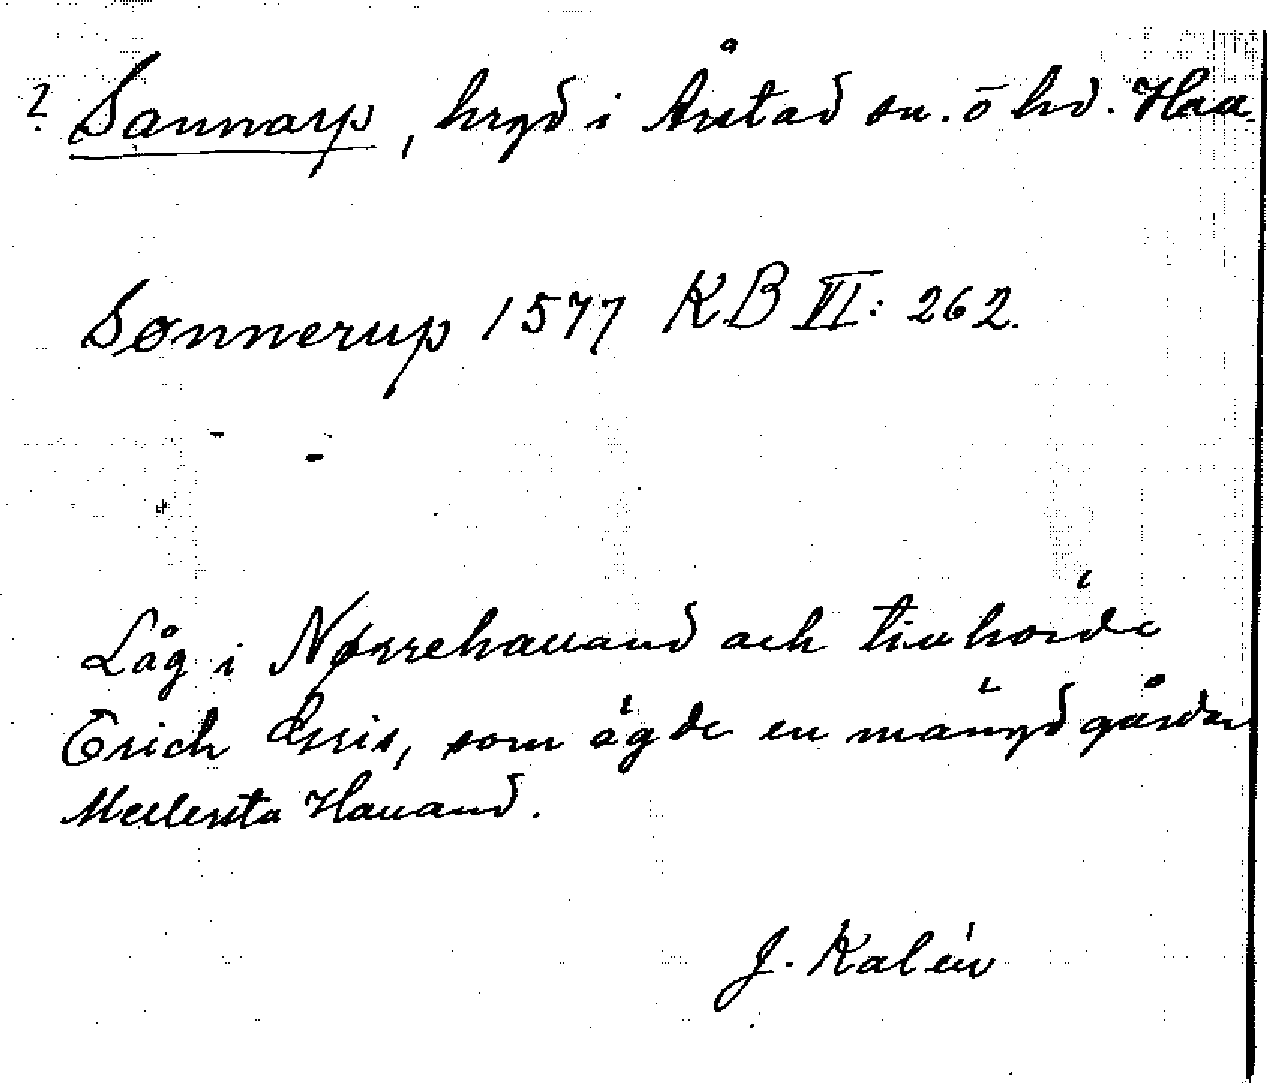 ? Sannarp, hrgd i Årstad sn. o hd. Hall.
Sønnerup 1577 KB VI: 262.
Låg i Nørrehalland och tillhörde
Erich Ersis, som ägde en mängd gårdar
Mellersta Halland.
J. Kalén